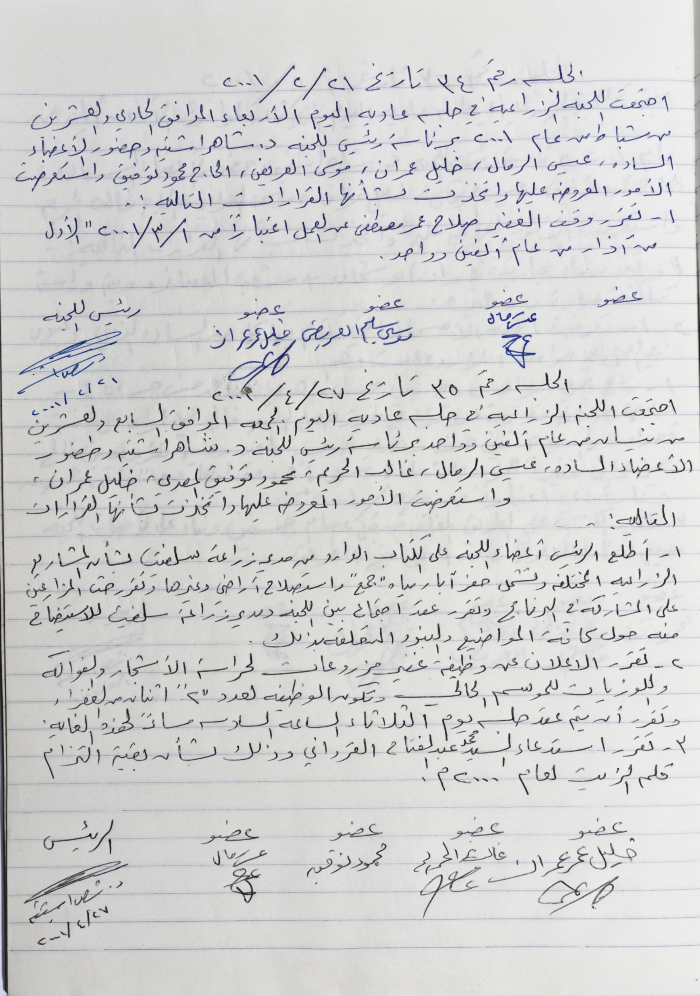 الجلسه رقم ٣٤ تاريخ ٢١/٢/٢٠٠١
اجتمعت اللجنة الزراعية في جلسه عاديه اليوم الأربعاء الموافق الحادي والعشرين
من شباط من عام ٢٠٠١ برئاسة رئيس اللجنه د. شاهر اشتيه وحضور الأعضاء
الساده، عيسى الرمال، خليل عمران، موسى العريض، الحاج محمود توفيق واستعرضت
الأمور المعروضه عليها واتخذت بشأنها القرارات التاليه :-
١- تقرر وقف الغفير صلاح عمر مصطفى عن العمل اعتباراً من ١/٣/٢٠٠١ "الأول
من آذار من عام ألفين وواحد.
عضو عضو عضو عضو رئيس اللجنه
عيسى رمال موسى سليم العريض خليل عمر عمران
٢٠٠١/٢/٢١
الجلسه رقم ٣٥ تاريخ ٢٧/٤/٢٠٠١
اجتمعت اللجنة الزراعيه في جلسه عاديه اليوم الجمعه الموافق السابع والعشرين
من نيسان من عام ألفين وواحد برئاسة رئيس اللجنه د. شاهر اشتيه وحضور
الأعضاء الساده، عيسى الرمال، غالب الحرم، محمود توفيق المصري، خليل عمران،
واستعرضت الأمور المعروضه عليها واتخذت بشأنها القرارات
التاليه :-
١- أطلع الرئيس أعضاء اللجنه على الكتاب الوارد من مدير زراعة سلفيت بشأن المشاريع
الزراعيه المختلفه وتشمل حفر آبار مياه "جمع" واستصلاح أراضي وغيرها وتقرر حث المزارعين
على المشاركه في البرنامج وتقرر عقد اجتماع بين اللجنه ومدير زراعة سلفيت للاستيضاح
منه حول كافة المواضيع والبنود المتعلقه بذلك.
٢- تقرر الاعلان عن وظيفة غفير مزروعات لحراسة الأشجار والفواكه
واللوزيات للموسم الحالي وتكون الوظيفه لعدد "٢" اثنان من الغفراء
وتقرر أن يتم عقد جلسه يوم الثلاثاء الساعه السادسه مساءً لهذه الغايه.
٣- تقرر استدعاء السيد محمد عبد الفتاح القرواني وذلك بشأن بقية التزام
قلم الزيت لعام ٢٠٠٠م.
عضو عضو عضو عضو الرئيس
خليل عمر عمران غالب الحرم محمود توفيق عيسى رمال
د. شاهر اشتيه
٢٠٠١/٤/٢٧